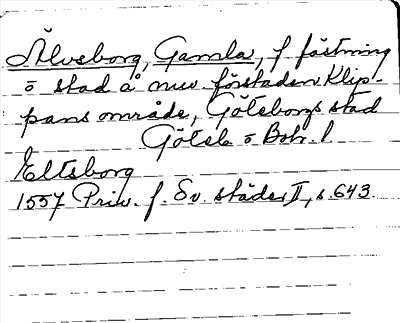 Älvsborg, Gamla, f fästning
o stad å nuv förstaden Klip-
pans område, Göteborgs stad
Göteb o Boh. l.
Eltsborg
1557 Priv. f. Sv. städer II, s 643.